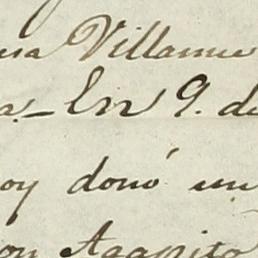 sa Villanue
a. - En 9. de
oy donó un
on Agapito